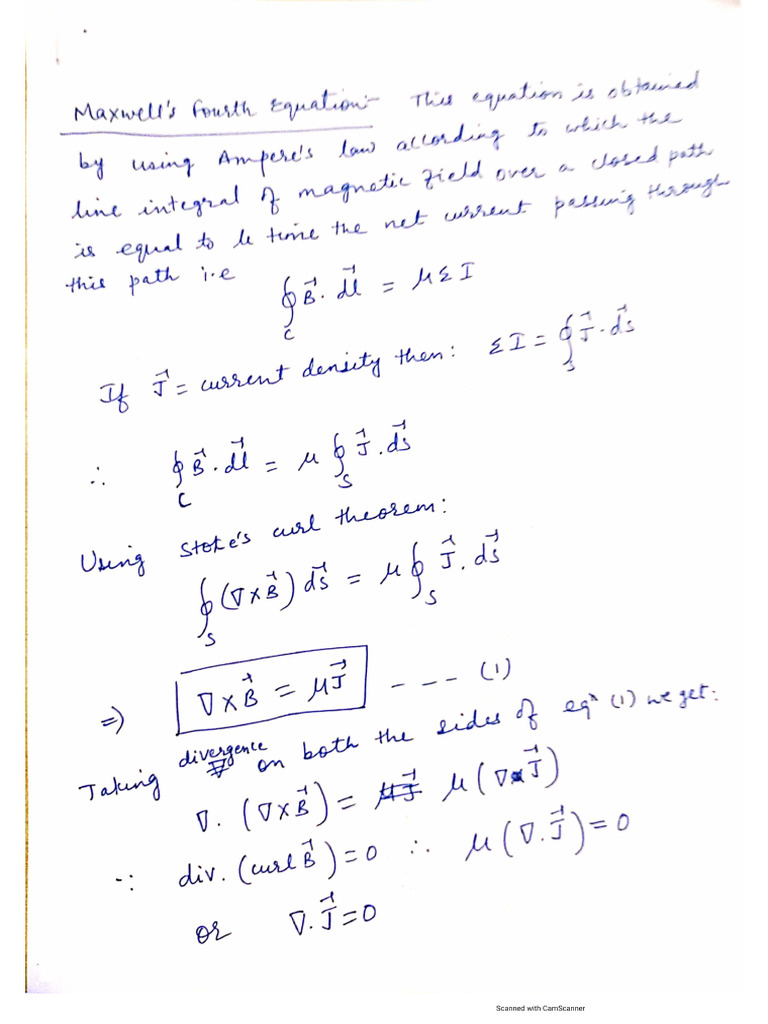 Maxwell's Fourth Equation:- This equation is obtained
by using Ampere's law according to which the
line integral of magnetic field over a closed path
is equal to μ time the net current passing through
this path i.e
∮_C B⃗. dl⃗ = μ Σ I
If J⃗ = current density then: ΣI = ∮_S J⃗. ds⃗
∴ ∮_C B⃗. dl⃗ = μ ∮_S J⃗. ds⃗
Using Stoke's curl theorem:
∮_S (∇×B⃗) ds⃗ = μ ∮_S J⃗. ds⃗
=) ∇×B⃗ = μJ⃗ - - - - (1)
Taking divergence on both the sides of eqn (1) we get:
∇. (∇×B⃗) = μ(∇.J⃗)
∵ div. (curl B⃗) = 0 ∴ μ(∇.J⃗) = 0
or ∇.J⃗ = 0
Scanned with CamScanner